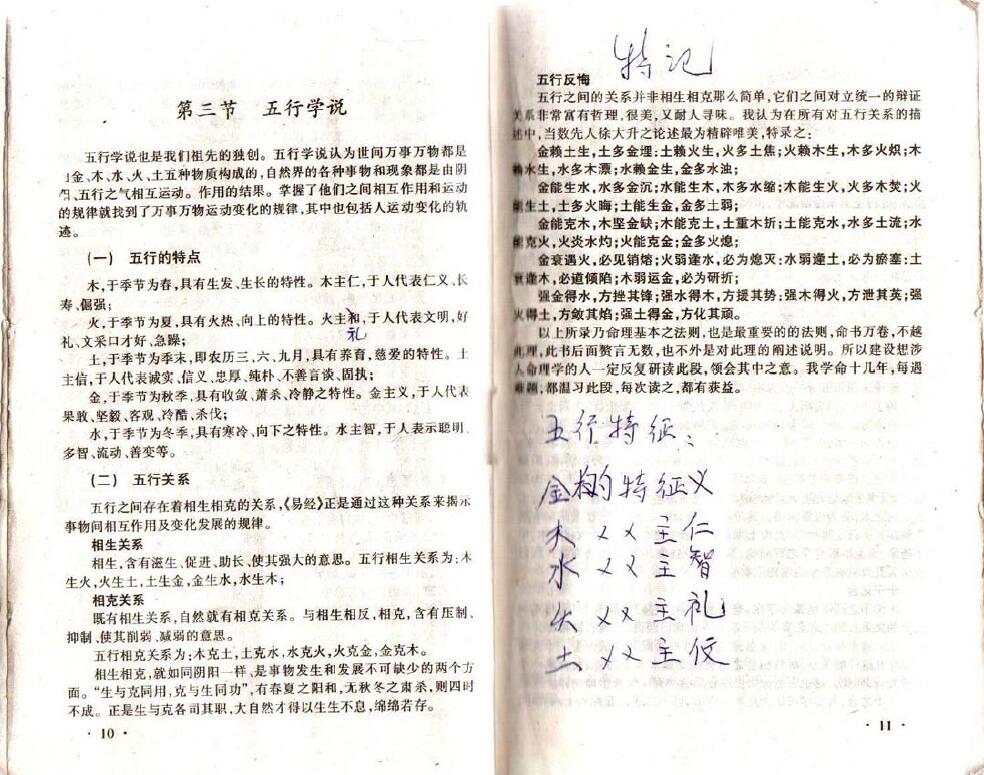 第三节 五行学说
五行学说也是我们祖先的独创。五行学说认为世间万事万物都是
金、木、水、火、土五种物质构成的,自然界的各种事物和现象都是由阴
、五行之气相互运动。作用的结果。掌握了他们之间相互作用和运动
的规律就找到了万事万物运动变化的规律,其中也包括人运动变化的轨
迹。
(一) 五行的特点
木,于季节为春,具有生发、生长的特性。木主仁,于人代表仁义、长
寿、倔强;
火,于季节为夏,具有火热、向上的特性。火主和,于人代表文明,好
礼、文采口才好、急躁;
礼
土,于季节为季末,即农历三、六、九月,具有养育,慈爱的特性。土
主信,于人代表诚实、信义、忠厚、纯朴、不善言谈、固执;
金,于季节为秋季,具有收敛、萧杀、冷静之特性。金主义,于人代表
果敢、坚毅、客观、冷酷、杀伐;
水,于季节为冬季,具有寒冷、向下之特性。水主智,于人表示聪明、
多智、流动、善变等。
(二) 五行关系
五行之间存在着相生相克的关系,《易经》正是通过这种关系来揭示
事物间相互作用及变化发展的规律。
相生关系
相生,含有滋生、促进、助长、使其强大的意思。五行相生关系为:木
生火,火生土,土生金,金生水,水生木;
相克关系
既有相生关系,自然就有相克关系。与相生相反,相克,含有压制、
抑制、使其削弱、减弱的意思。
五行相克关系为:木克土,土克水,水克火,火克金,金克木。
相生相克,就如同阴阳一样,是事物发生和发展不可缺少的两个方
面。“生与克同用,克与生同功”,有春夏之阳和,无秋冬之肃杀,则四时
不成。正是生与克各司其职,大自然才得以生生不息,绵绵若存。
· 10 ·
特记
五行反悔
五行之间的关系并非相生相克那么简单,它们之间对立统一的辩证
关系非常富有哲理,很美,又耐人寻味。我认为在所有对五行关系的描
述中,当数先人徐大升之论述最为精辟唯美,特录之:
金赖土生,土多金埋:土赖火生,火多土焦;火赖木生,木多火炽;木
赖水生,水多木漂;水赖金生,金多水浊;
金能生水,水多金沉;水能生木,木多水缩;木能生火,火多木焚;火
能生土,土多火晦;土能生金,金多土弱;
金能克木,木坚金缺;木能克土,土重木折;土能克水,水多土流;水
能克火,火炎水灼;火能克金;金多火熄;
金衰遇火,必见销熔;火弱逢水,必为熄灭:水弱逢土,必为瘀塞:土
衰逢木,必道倾陷;木弱运金,必为研折;
强金得水,方挫其锋;强水得木,方援其势:强木得火,方泄其英;强
火得土,方敛其焰;强土得金,方化其顽。
以上所录乃命理基本之法则,也是最重要的的法则,命书万卷,不越
此理,此书后面赘言无数,也不外是对此理的阐述说明。所以建设想涉
人命理学的人一定反复研读此段,领会其中之意。我学命十几年,每遇
难题,都温习此段,每次读之,都有获益。
五行特征:
金的特征义
木 〃 〃 主仁
水 〃 〃 主智
火 〃 〃 主礼
土 〃 〃 主信
· 11 ·